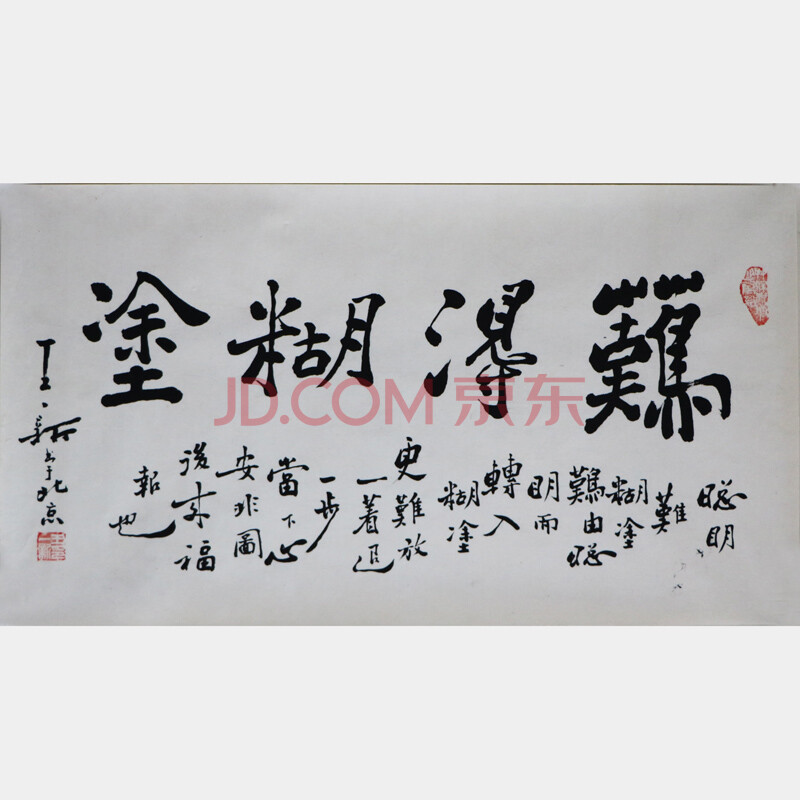 難得糊塗
聰明
難
糊塗
難由聰
明而
轉入
糊塗
更難放
一着退
一步
當下心
安非圖
後來福
報也
书于北京
JD.COM 京东